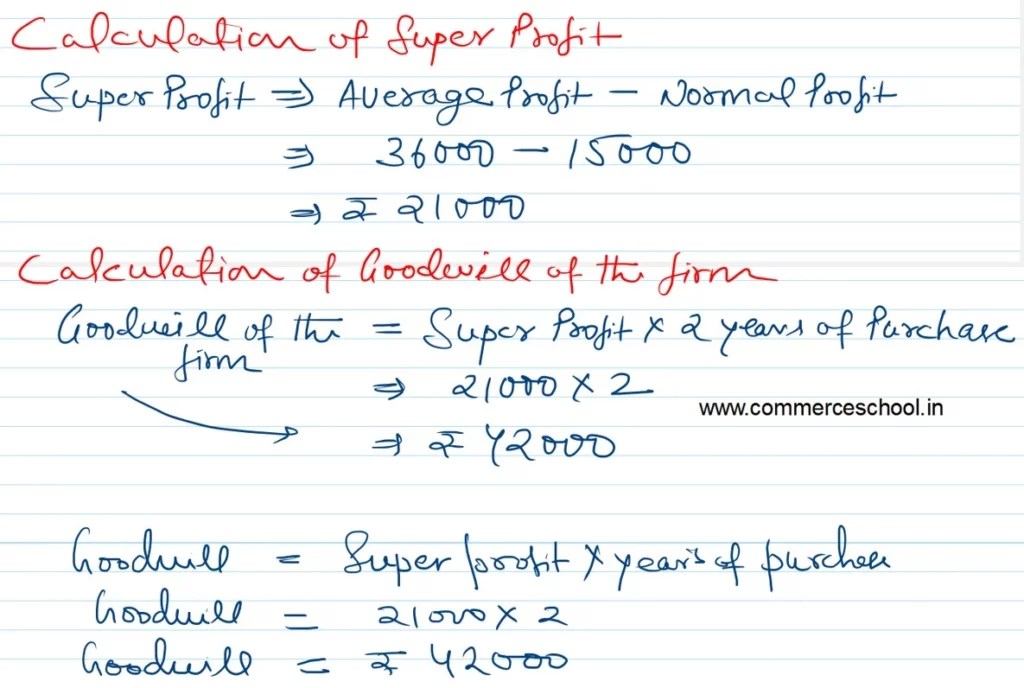 Calculation of Super Profit
Super Profit ⇒ Average Profit – Normal Profit
⇒ 36000 – 15000
⇒ ₹ 21000
Calculation of Goodwill of the firm
Goodwill of the firm = Super Profit × 2 years of Purchase
⇒ 21000 × 2
www.commerceschool.in
⇒ ₹ 42000
Goodwill = Super profit × year's of purchase
Goodwill = 21000 × 2
Goodwill = ₹ 42000